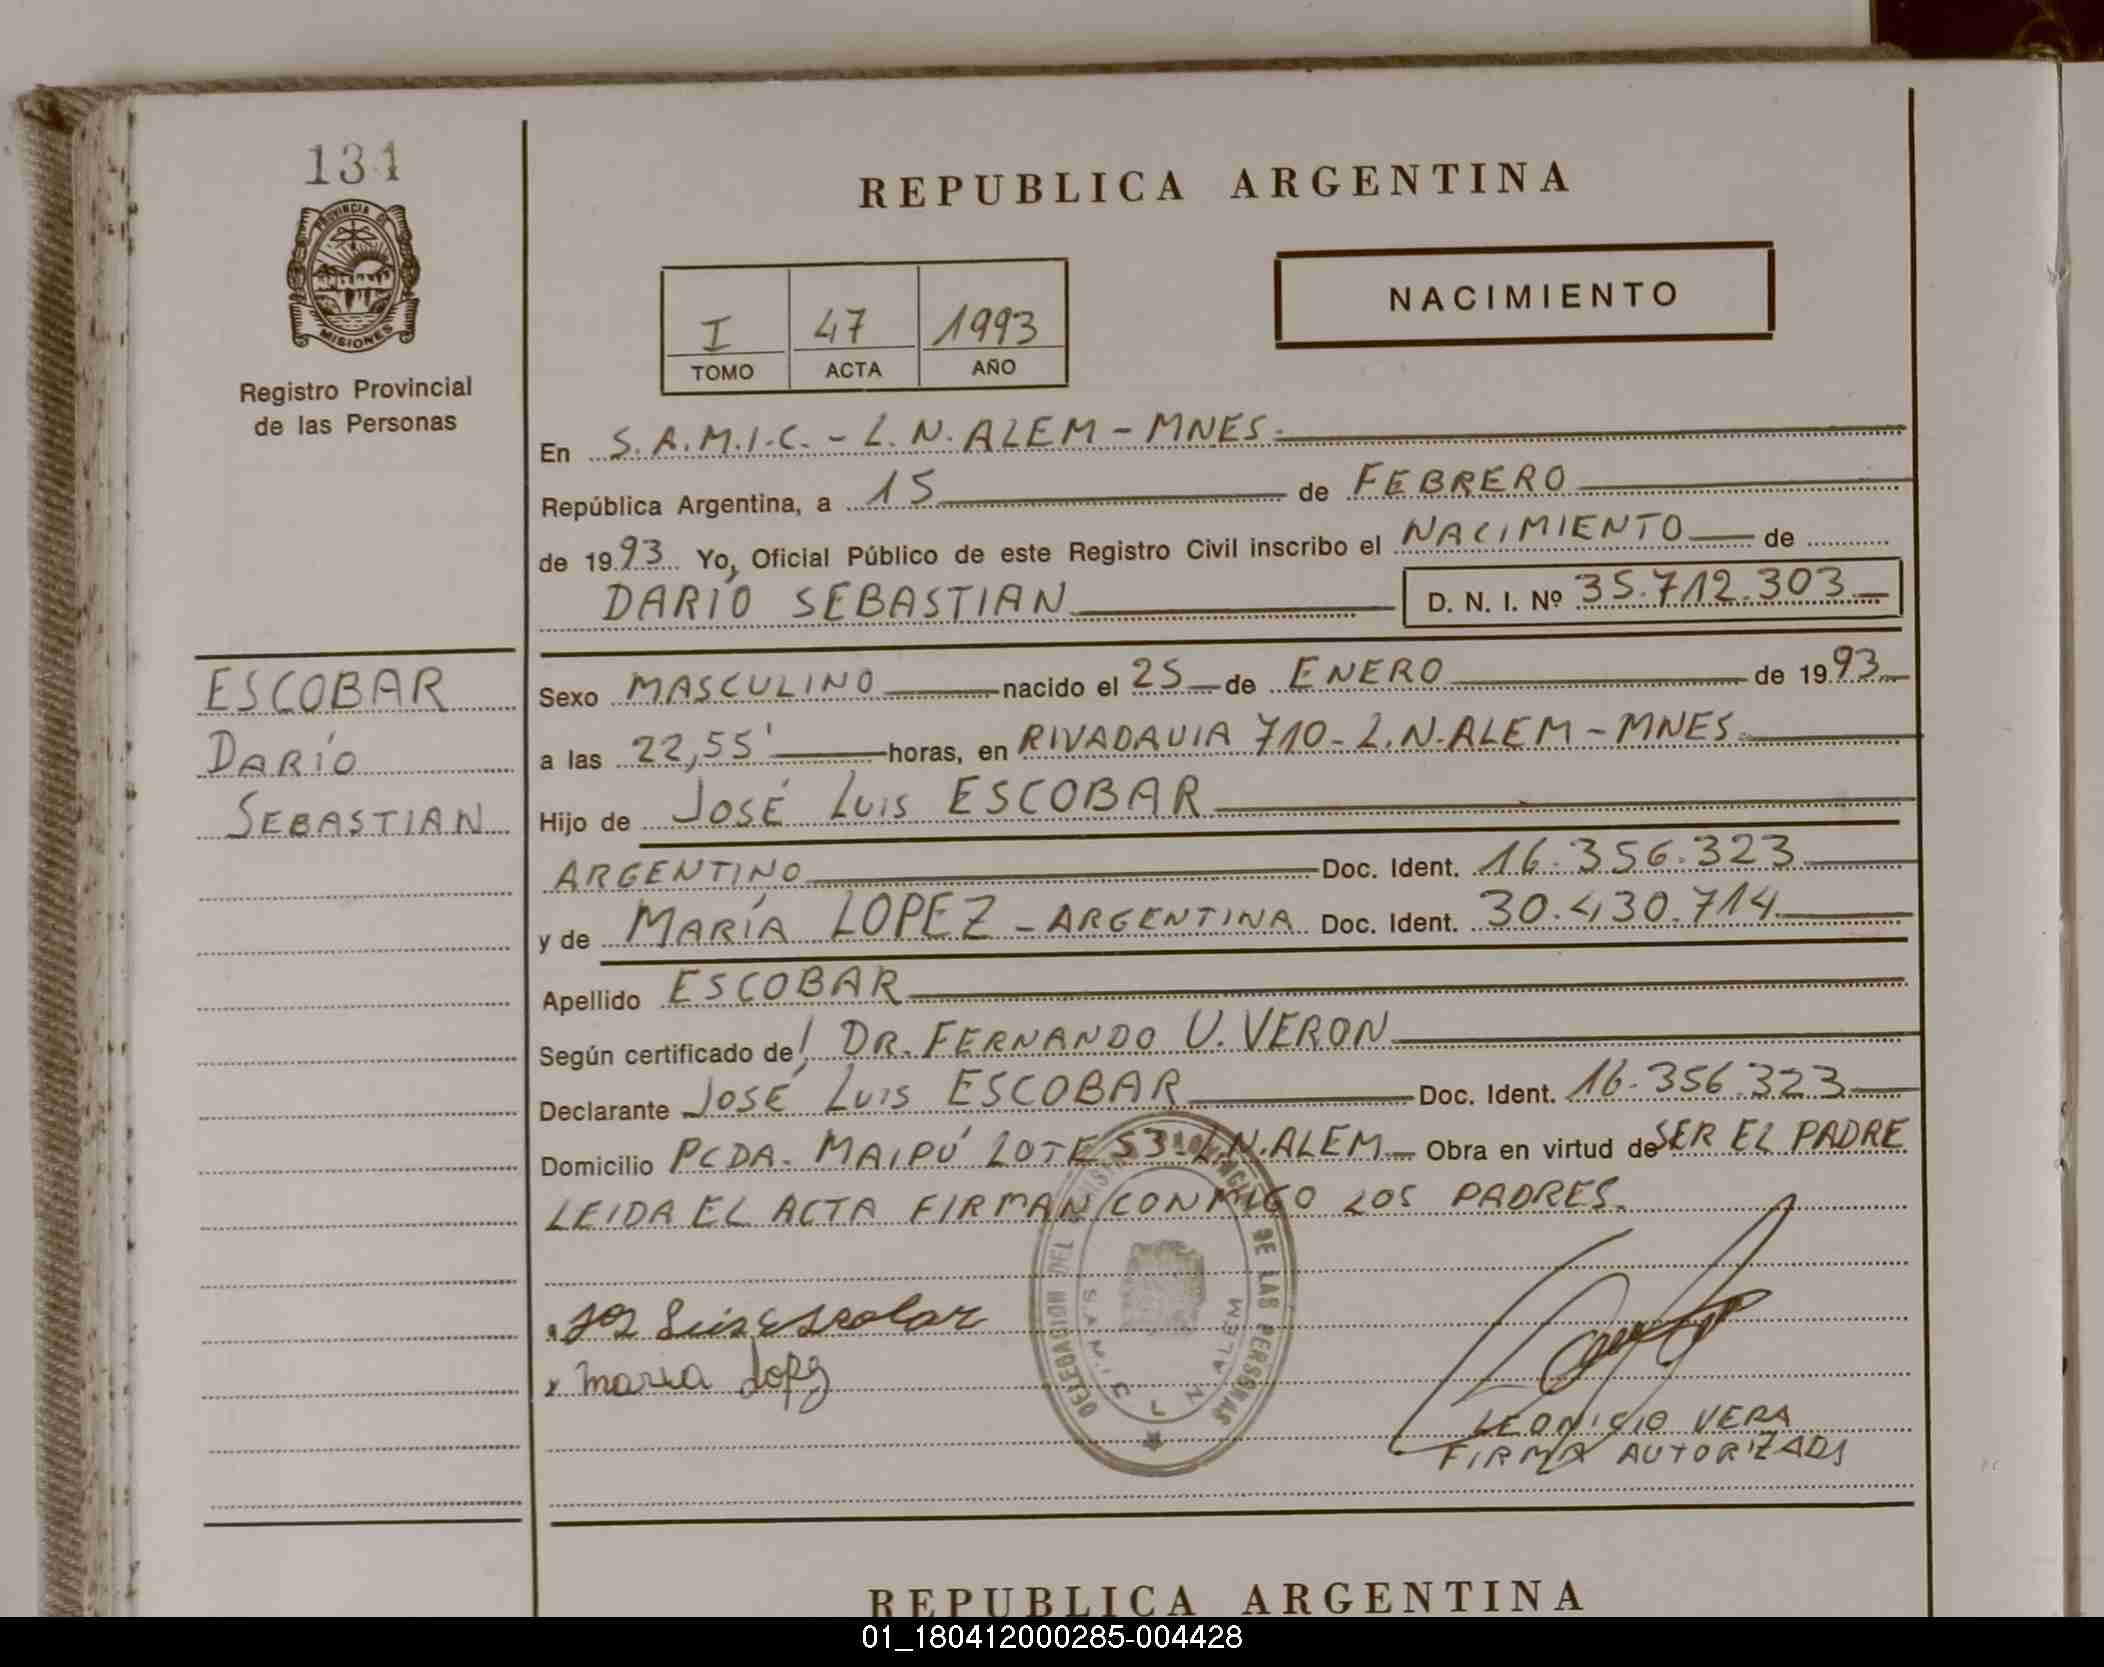 134
PROVINCIA DE
MISIONES
Registro Provincial
de las Personas
REPUBLICA ARGENTINA
I 47 1993
TOMO ACTA AÑO
NACIMIENTO
En S.A.M.I.C. - L.N. ALEM - MNES.
República Argentina, a 15 de FEBRERO
de 1993 Yo, Oficial Público de este Registro Civil inscribo el NACIMIENTO de
DARÍO SEBASTIAN D. N. I. Nº 35.712.303
ESCOBAR
DARÍO
SEBASTIAN
Sexo MASCULINO nacido el 25 de ENERO de 1993
a las 22,55' horas, en RIVADAVIA 710 - L.N. ALEM - MNES.
Hijo de JOSÉ LUIS ESCOBAR
ARGENTINO Doc. Ident. 16.356.323
y de MARÍA LOPEZ - ARGENTINA Doc. Ident. 30.430.714
Apellido ESCOBAR
Según certificado de: DR. FERNANDO U. VERON
Declarante JOSÉ LUIS ESCOBAR Doc. Ident. 16.356.323
Domicilio PCDA. MAIPÚ LOTE 53 - L.N. ALEM Obra en virtud de SER EL PADRE
LEIDA EL ACTA FIRMAN CONMIGO LOS PADRES.
Luis Escobar
maria Lopz
DELEGACION DEL DE LAS PERSONAS
S.A.M.I.C. L N ALEM
LEONICIO VERA
FIRMA AUTORIZADA
REPUBLICA ARGENTINA
01_180412000285-004428